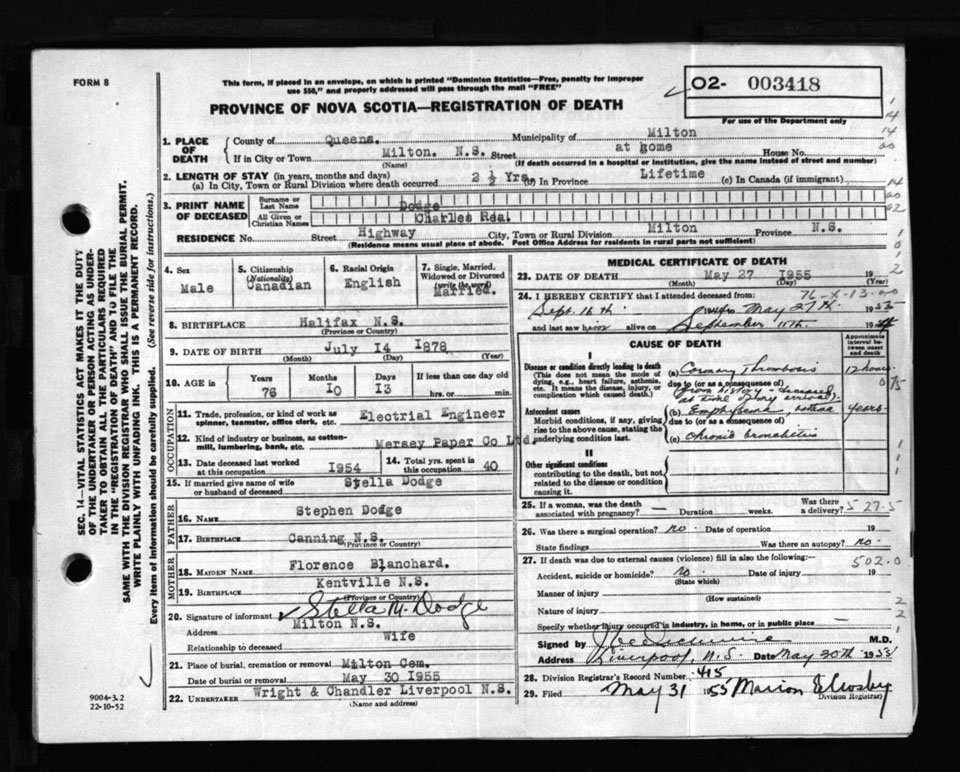 FORM 8
This form, if placed in an envelope, on which is printed "Dominion Statistics—Free, penalty for improper
use $50," and properly addressed will pass through the mail "FREE"
O2- 003418
For use of the Department only
PROVINCE OF NOVA SCOTIA—REGISTRATION OF DEATH
1. PLACE OF DEATH
County of Queens. Municipality of Milton
If in City or Town Milton. N.S. Street at home House No.
(Name) (If death occurred in a hospital or institution, give the name instead of street and number)
2. LENGTH OF STAY (in years, months and days)
(a) In City, Town or Rural Division where death occurred 2 ½ Yrs. (b) In Province Lifetime (c) In Canada (if immigrant)
3. PRINT NAME OF DECEASED
Surname or Last Name Dodge
All Given or Christian Names Charles Rea.
RESIDENCE No. Street Highway City, Town or Rural Division Milton Province N.S.
(Residence means usual place of abode. Post Office Address for residents in rural parts not sufficient)
4. Sex
Male
5. Citizenship (Nationality)
Canadian
6. Racial Origin
English
7. Single, Married, Widowed or Divorced (write the word)
Married.
8. BIRTHPLACE Halifax N.S.
(Province or Country)
9. DATE OF BIRTH July 14 1878
(Month) (Day) (Year)
10. AGE in Years Months Days If less than one day old
76 10 13 hrs. or min.
OCCUPATION
11. Trade, profession, or kind of work as spinner, teamster, office clerk, etc. Electrial Engineer
12. Kind of industry or business, as cotton-mill, lumbering, bank, etc. Mersey Paper Co Ltd.
13. Date deceased last worked at this occupation 1954
14. Total yrs. spent in this occupation 40
15. If married give name of wife or husband of deceased Stella Dodge
FATHER
16. NAME Stephen Dodge
17. BIRTHPLACE Canning N.S.
(Province or Country)
MOTHER
18. MAIDEN NAME Florence Blanchard.
19. BIRTHPLACE Kentville N.S.
(Province or Country)
20. Signature of informant Stella M. Dodge
Address Milton N.S.
Relationship to deceased Wife
21. Place of burial, cremation or removal Milton Cem.
Date of burial or removal May 30 1955
22. UNDERTAKER Wright & Chandler Liverpool N.S.
(Name and address)
MEDICAL CERTIFICATE OF DEATH
23. DATE OF DEATH May 27 1955 19
(Month) (Day)
76-X-13-00
24. I HEREBY CERTIFY that I attended deceased from:
Sept. 16th May 27th 1955
and last saw him alive on September 11th. 19
CAUSE OF DEATH
Approximate interval between onset and death
I
Disease or condition directly leading to death
(This does not mean the mode of dying, e.g., heart failure, asthenia, etc. It means the disease, injury, or complication which caused death.)
(a) Coronary Thrombosis 12 hours
due to (or as a consequence of)
(from history - deceased
at time of my arrival).
Antecedent causes
Morbid conditions, if any, giving rise to the above cause, stating the underlying condition last.
(b) Emphysema, asthma years.
due to (or as a consequence of)
(c) chronic bronchitis
II
Other significant conditions
contributing to the death, but not related to the disease or condition causing it.
25. If a woman, was the death associated with pregnancy? — Duration weeks. Was there a delivery?
527.5
26. Was there a surgical operation? no. Date of operation 19
State findings Was there an autopsy? no.
27. If death was due to external causes (violence) fill in also the following:—
502.0
Accident, suicide or homicide? no Date of injury 19
(State which)
Manner of injury
(How sustained)
Nature of injury
Specify whether injury occurred in industry, in home, or in public place —
Signed by M.D.
Address Liverpool, N.S. Date May 30th 1955
28. Division Registrar's Record Number 415
29. Filed May 31 1955 Marion E Crosby
Division Registrar)
SEC. 14—VITAL STATISTICS ACT MAKES IT THE DUTY
OF THE UNDERTAKER OR PERSON ACTING AS UNDER-
TAKER TO OBTAIN ALL THE PARTICULARS REQUIRED
IN THE "REGISTRATION OF DEATH" AND TO FILE THE
SAME WITH THE DIVISION REGISTRAR WHO SHALL ISSUE THE BURIAL PERMIT.
WRITE PLAINLY WITH UNFADING INK. THIS IS A PERMANENT RECORD.
Every item of Information should be carefully supplied. (See reverse side for instructions.)
9004-3.2
22-10-52